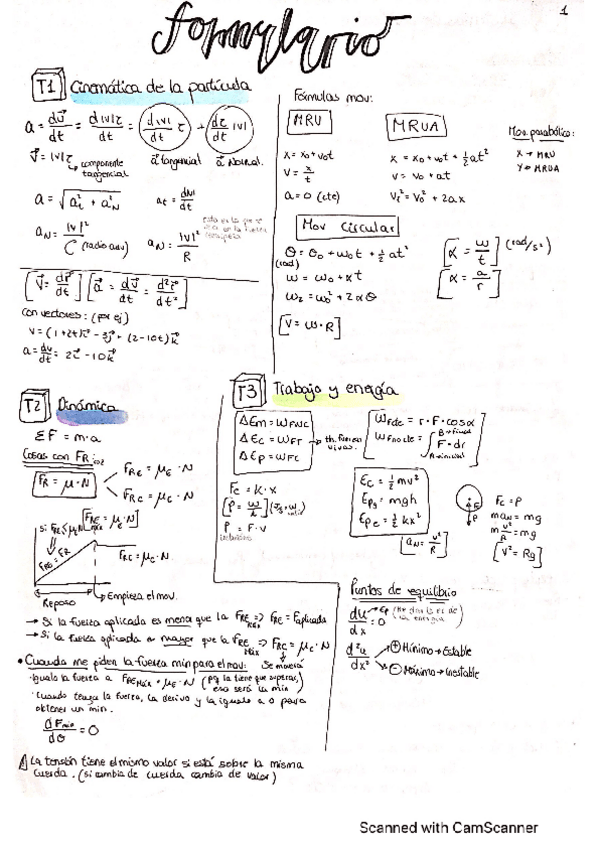 1
formulario
T1 Cinemática de la partícula
a = dv⃗/dt = d|v|τ/dt = d|v|/dt τ + dτ/dt |v|
v⃗ = |v|τ → componente tangencial
a⃗ tangencial a⃗ Normal.
a = √(a_t² + a_N²)
a_t = d|v|/dt
a_N = |v|²/ρ (radio curv)
a_N = |v|²/R
[v⃗ = dr⃗/dt] [a⃗ = dv⃗/dt = d²r⃗/dt²]
con vectores: (por ej)
v = (1+2t)i⃗ - 3j⃗ + (2-10t)k⃗
a = dv/dt = 2i⃗ - 10k⃗
Fórmulas mov:
MRU
x = x₀ + v₀t
v = x/t
a = 0 (cte)
MRUA
x = x₀ + v₀t + ½at²
v = v₀ + at
v_f² = v₀² + 2ax
Mov parabólico:
X → MRU
Y → MRUA
Mov Circular
θ = θ₀ + ω₀t + ½αt²
(rad)
ω = ω₀ + αt
ω² = ω₀² + 2αθ
[v = ω·R]
[α = ω/t] (rad/s²)
[α = a/r]
T2 Dinámica
ΣF = m·a
Cosas con FR:
FR = μ·N
F_RE = μ_E·N
F_RC = μ_C·N
[F_RE = μ_E·N]
F_RC = μ_C·N
Reposo
Empieza el mov.
→ Si la fuerza aplicada es menor que la F_RE ⇒ F_RE = F aplicada
→ Si la fuerza aplicada es mayor que la F_RE Máx ⇒ F_RC = μ_C·N
Se movería
• Cuando me piden la fuerza mín para el mov:
· Igualo la fuerza a F_RE Máx = μ_E·N (pq la tiene que superar, eso será la mín
· Cuando tenga la fuerza, la derivo y la igualo a 0 para
obtener un mín.
dF mín/dθ = 0
⚠ La tensión tiene el mismo valor si está sobre la misma
cuerda. (si cambia de cuerda cambia de valor)
T3 Trabajo y energía
ΔEm = W_FNC
ΔEc = W_FT → th. fuerzas vivas.
ΔEp = W_FC
W_Fcte = r·F·cosα
W_Fno cte = ∫ F·dr
B → final
A → inicial
Fc = K·x
[P = W/t]
P = F·v
Ec = ½mv²
Epg = mgh
Epe = ½kx²
[a_N = v²/R]
Fc = P
ma_N = mg
m v²/R = mg
[v² = Rg]
Puntos de equilibrio
du/dx = 0
d²u/dx²
⊕ Mínimo → Estable
⊖ Máximo → Inestable
Scanned with CamScanner